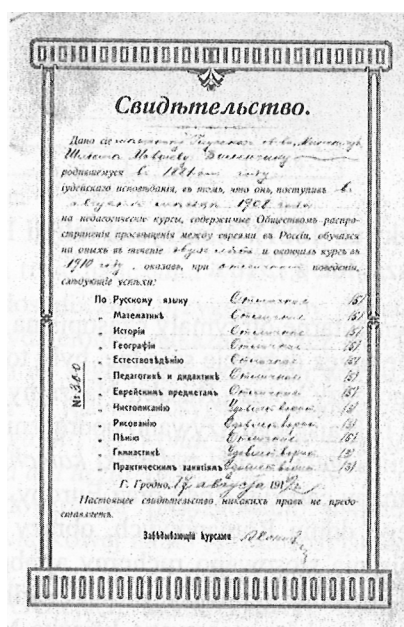 Свидѣтельство.
Дано сіе
Шлемѣ
родившемуся въ 1881 году
іудейскаго исповѣданія, въ томъ, что онъ, поступивъ въ
августѣ мѣсяцѣ 1908 года
на педагогическіе курсы, содержимые Обществомъ распро-
страненія просвѣщенія между евреями въ Россіи, обучался
на оныхъ въ теченіе двухъ лѣтъ и окончилъ курсъ въ
1910 году, оказавъ, при отличномъ поведеніи,
слѣдующіе успѣхи:
По Русскому языку Отличные (5)
„ Математикѣ Отличные (5)
„ Исторіи Отличные (5)
„ Географіи Отличные (5)
„ Естествовѣдѣнію Отличные (5)
„ Педагогикѣ и дидактикѣ Отличные (5)
„ Еврейскимъ предметамъ Отличные (5)
„ Чистописанію (3)
„ Рисованію (3)
„ Пѣнію Отличные (5)
„ Гимнастикѣ (3)
„ Практическимъ занятіямъ (3)
№ 300
Г. Гродно, 17 августа 191
Настоящее свидѣтельство никакихъ правъ не предо-
ставляетъ.
Завѣдывающій курсами